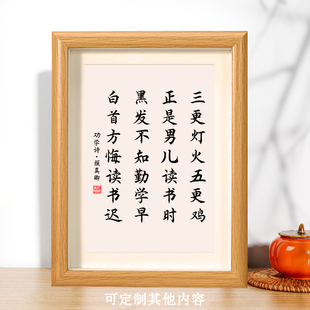 三更灯火五更鸡
正是男儿读书时
黑发不知勤学早
白首方悔读书迟
劝学诗·颜真卿
可定制其他内容